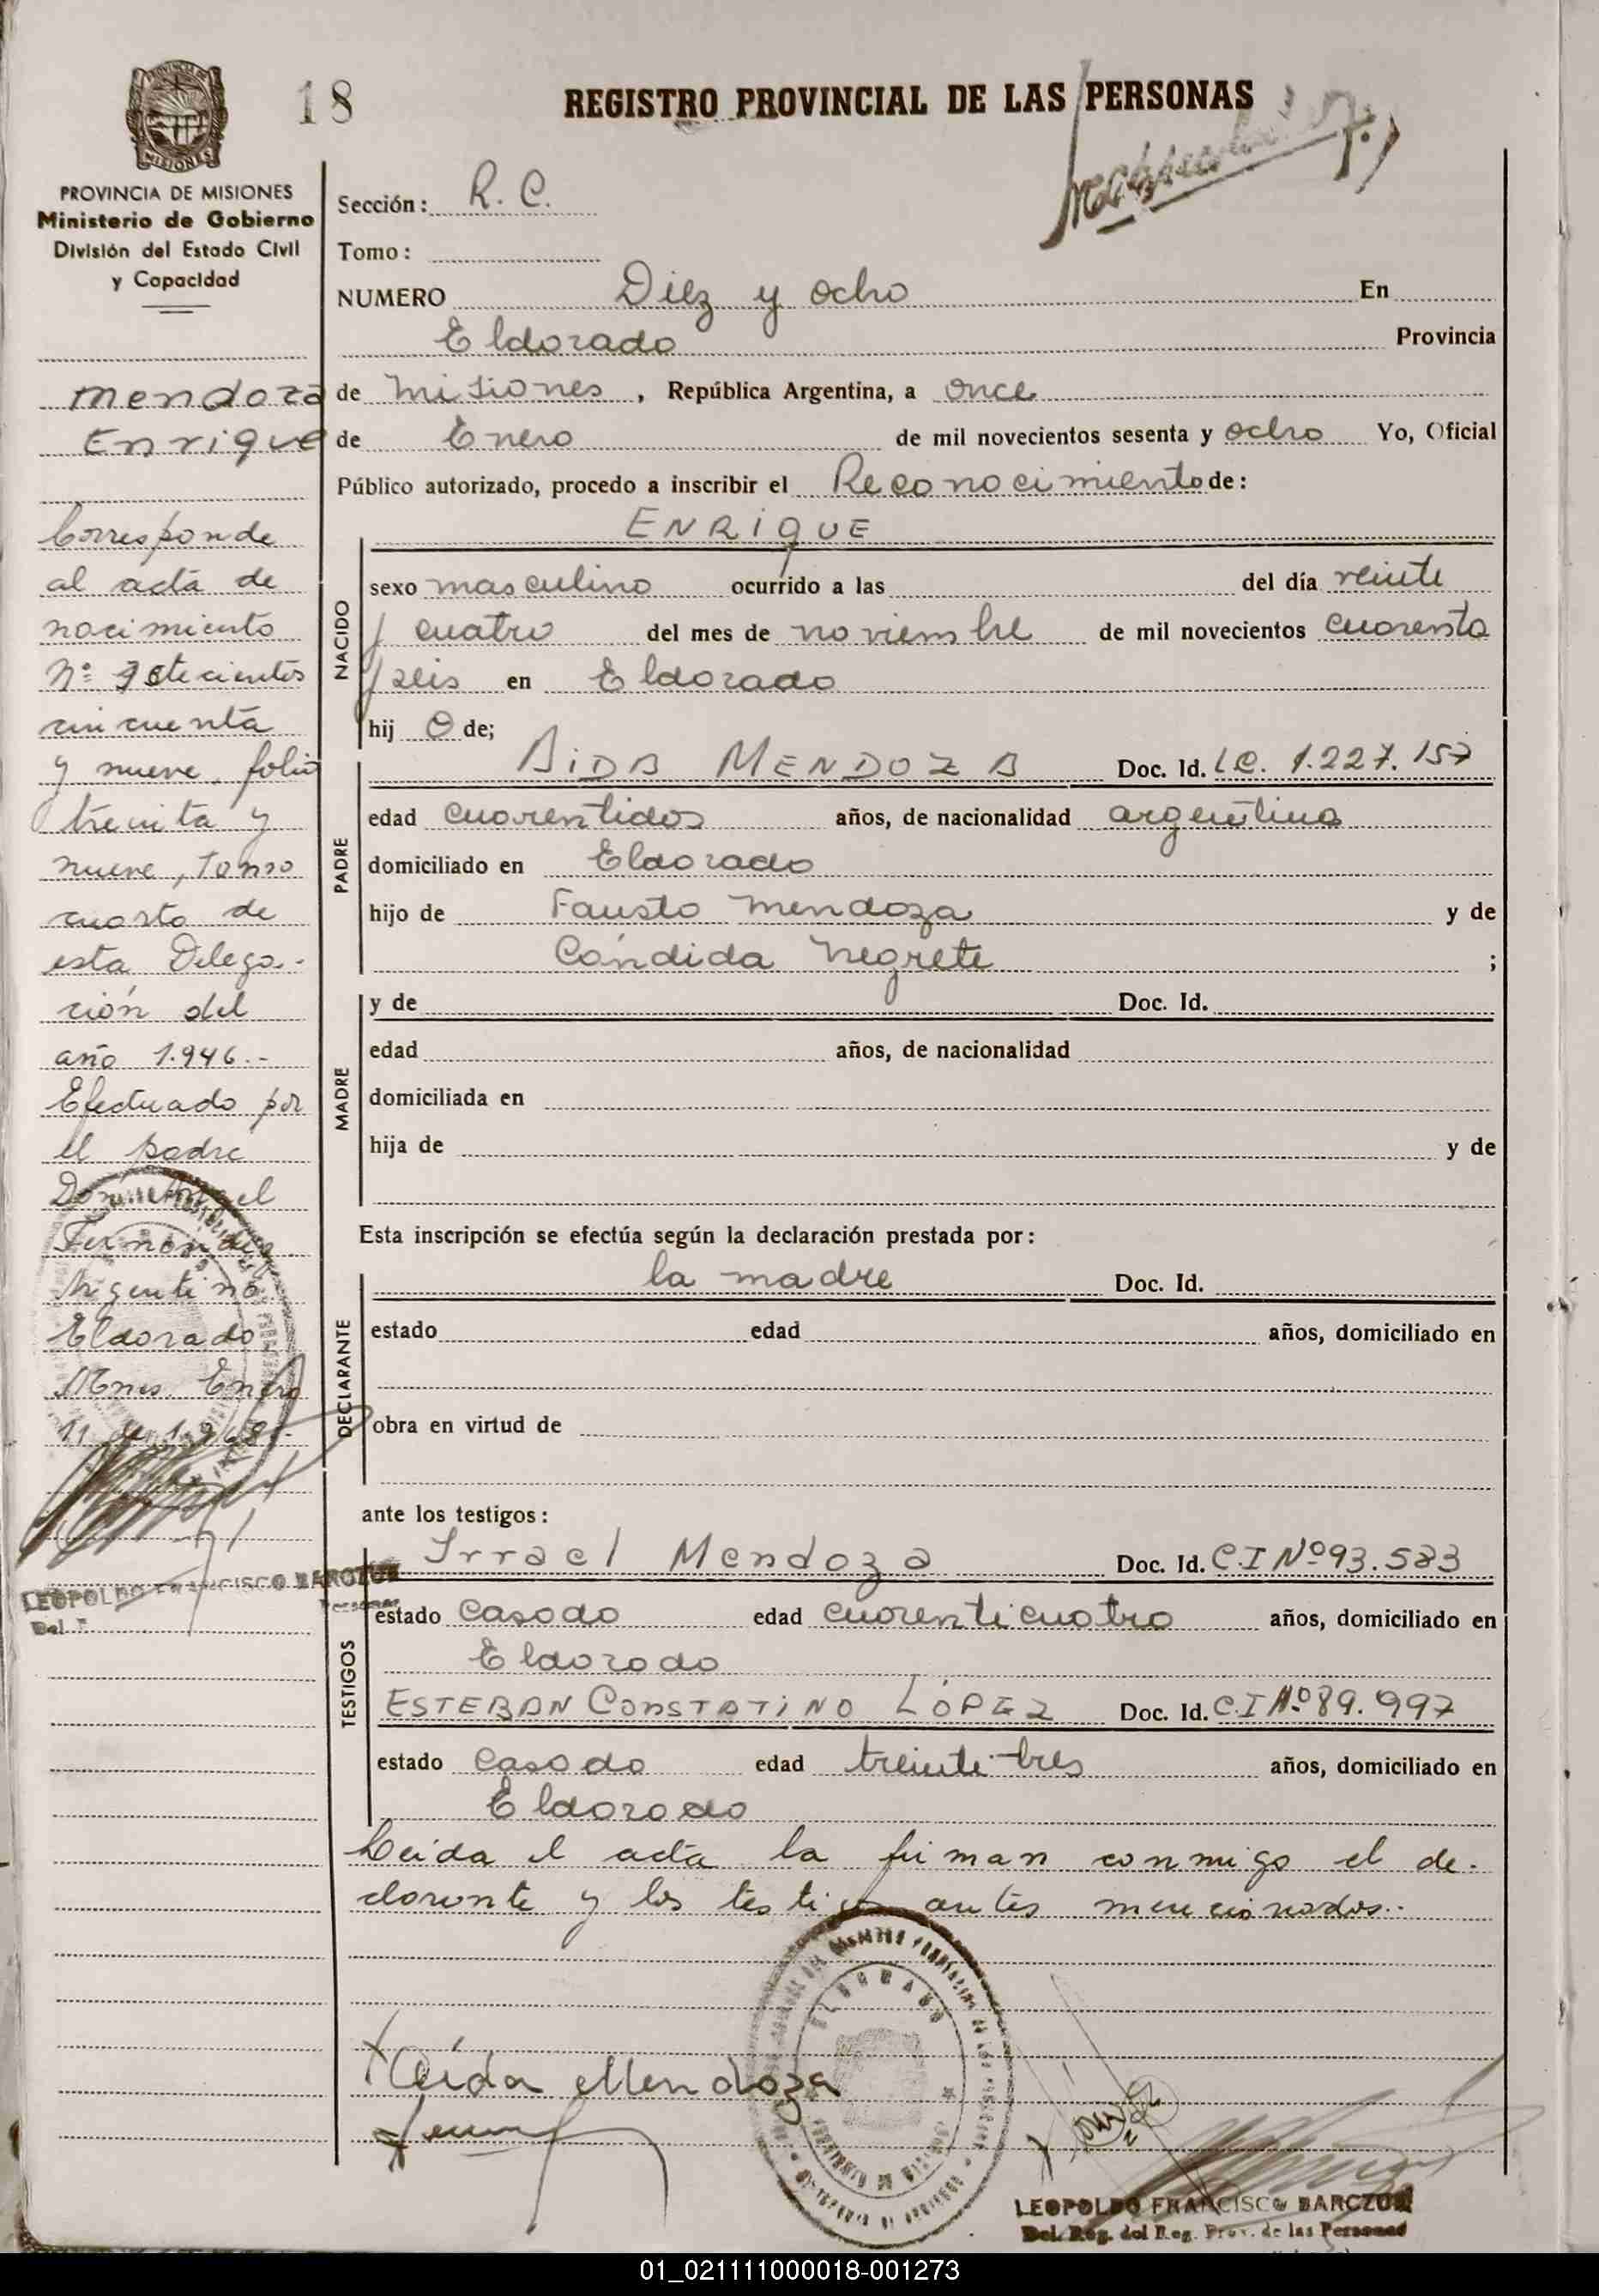 18
REGISTRO PROVINCIAL DE LAS PERSONAS
PROVINCIA DE MISIONES
Ministerio de Gobierno
División del Estado Civil
y Capacidad
mendoza
Enrique
Corresponde
al acta de
nacimiento
Nº setecientos
cincuenta
y nueve, folio
treinta y
nueve, tomo
cuarto de
esta Delega-
ción del
año 1.946.-
Efectuado por
el padre
Don Angel
Fernandez
Argentino
Eldorado
Mnes. Enero
11 de 1.968.-
LEOPOLDO FRANCISCO BARCZUK
Sección: R. C.
Tomo:
NUMERO Diez y ocho En
Eldorado Provincia
de Misiones, República Argentina, a once
de Enero de mil novecientos sesenta y ocho Yo, Oficial
Público autorizado, procedo a inscribir el Reconocimiento de:
NACIDO
ENRIQUE
sexo masculino ocurrido a las del día veinte
y cuatro del mes de noviembre de mil novecientos cuarenta
y seis en Eldorado
hij o de;
PADRE
AIDA MENDOZA Doc. Id. L.C. 1.227.157
edad cuarentidos años, de nacionalidad argentina
domiciliado en Eldorado
hijo de Fausto Mendoza y de
Cándida Negrete ;
MADRE
y de Doc. Id.
edad años, de nacionalidad
domiciliada en
hija de y de
Esta inscripción se efectúa según la declaración prestada por:
DECLARANTE
la madre Doc. Id.
estado edad años, domiciliado en
obra en virtud de
ante los testigos:
TESTIGOS
Irrael Mendoza Doc. Id. C.I Nº 93.583
estado casado edad cuarenticuatro años, domiciliado en
Eldorado
ESTEBAN CONSTATINO LÓPEZ Doc. Id. C.I Nº 89.997
estado casado edad treinta tres años, domiciliado en
Eldorado
Leida el acta la firman conmigo el de-
clarante y los testigos antes mencionados.-
Aída Mendoza
ELDORADO
LEOPOLDO FRANCISCO BARCZUK
Del. Reg. del Reg. Prov. de las Personas
01_021111000018-001273